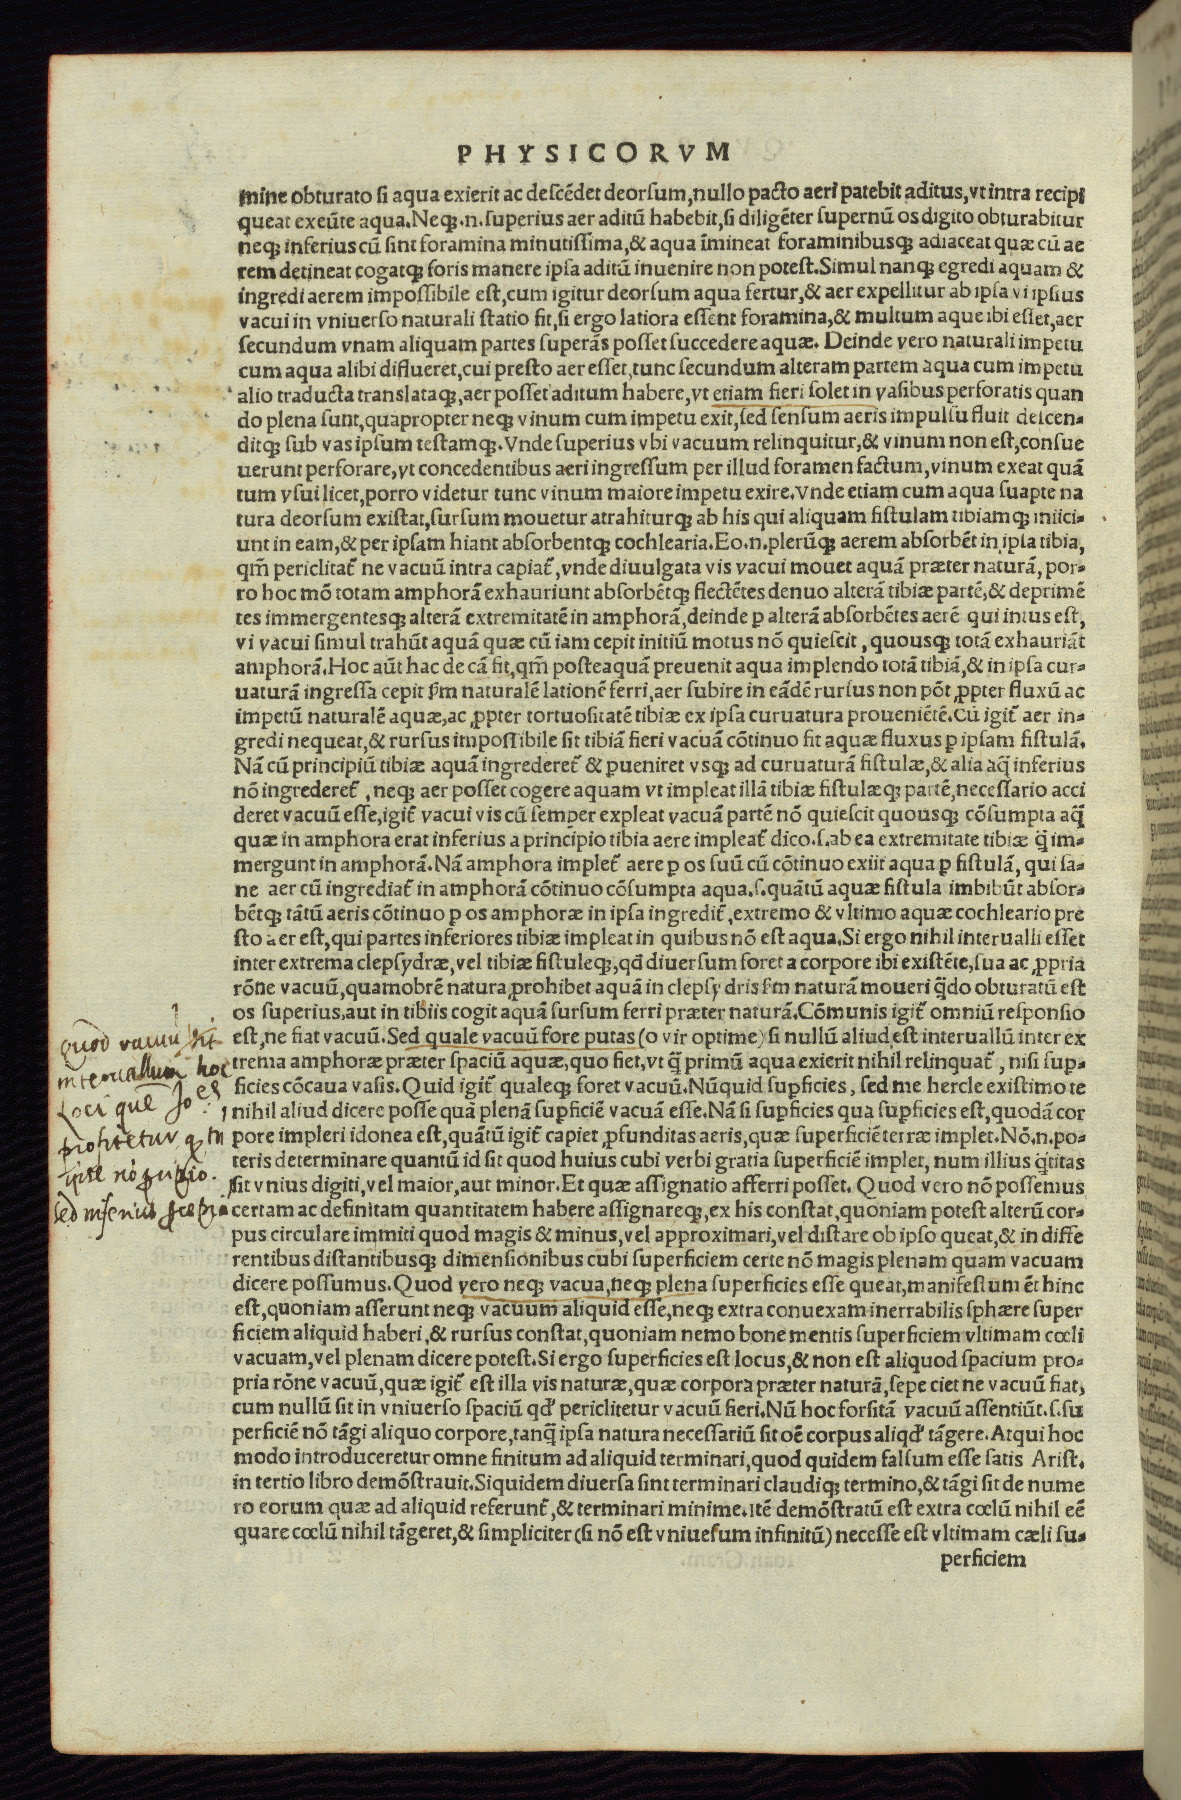 PHYSICORVM
mine obturato si aqua exierit ac descēdet deorsum,nullo pacto aeri patebit aditus,vt intra recipi
queat exeūte aqua.Neqꝫ.n.superius aer aditū habebit,si diligēter supernū os digito obturabitur
neqꝫ inferius cū sint foramina minutissima,& aqua īmineat foraminibusqꝫ adiaceat quæ cū ae
rem detineat cogatqꝫ foris manere ipsa aditū inuenire non potest.Simul nanqꝫ egredi aquam &
ingredi aerem impossibile est,cum igitur deorsum aqua fertur,& aer expellitur ab ipsa vi ipsius
vacui in vniuerso naturali statio fit,si ergo latiora essent foramina,& multum aque ibi esset,aer
secundum vnam aliquam partes superās posset succedere aquæ. Deinde vero naturali impetu
cum aqua alibi difflueret,cui presto aer esset,tunc secundum alteram partem aqua cum impetu
alio traducta translataqꝫ,aer posset aditum habere,vt etiam fieri solet in vasibus perforatis quan
do plena sunt,quapropter neqꝫ vinum cum impetu exit,sed sensum aeris impulsu fluit descen-
ditqꝫ sub vas ipsum testamqꝫ.Vnde superius vbi vacuum relinquitur,& vinum non est,consue
uerunt perforare,vt concedentibus aeri ingressum per illud foramen factum,vinum exeat quā
tum vsui licet,porro videtur tunc vinum maiore impetu exire.Vnde etiam cum aqua suapte na
tura deorsum existat,sursum mouetur atrahiturqꝫ ab his qui aliquam fistulam tibiamqꝫ iniici-
unt in eam,& per ipsam hiant absorbentqꝫ cochlearia.Eo.n.plerūqꝫ aerem absorbēt in ipsa tibia,
qm̄ periclitat̄ ne vacuū intra capiat̄,vnde diuulgata vis vacui mouet aquā præter naturā,por-
ro hoc mō totam amphorā exhauriunt absorbētqꝫ flectētes denuo alterā tibiæ partē,& deprimē
tes immergentesqꝫ alterā extremitatē in amphorā,deinde ꝑ alterā absorbētes aerē qui intus est,
vi vacui simul trahūt aquā quæ cū iam cepit initiū motus nō quiescit,quousqꝫ totā exhauriāt
amphorā.Hoc aūt hac de cā fit,qm̄ posteaquā preuenit aqua implendo totā tibiā,& in ipsa cur-
uaturā ingressa cepit ẜm naturalē lationē ferri,aer subire in eādē rursus non pōt ꝓpter fluxū ac
impetū naturalē aquæ,ac ꝓpter tortuositatē tibiæ ex ipsa curuatura prouenietē.Cū igit̄ aer in-
gredi nequeat,& rursus impossibile sit tibiā fieri vacuā cōtinuo fit aquæ fluxus ꝑ ipsam fistulā.
Nā cū principiū tibiæ aquā ingrederet̄ & ꝑueniret vsqꝫ ad curuaturā fistulæ,& alia aq̄ inferius
nō ingrederet̄,neqꝫ aer posset cogere aquam vt impleat illā tibiæ fistulæqꝫ partē,necessario acci
deret vacuū esse,igit̄ vacui vis cū semper expleat vacuā partē nō quiescit quousqꝫ cōsumpta aq̄
quæ in amphora erat inferius a principio tibia aere impleat̄ dico.s.ab ea extremitate tibiæ q̄ im-
mergunt in amphorā.Nā amphora implet̄ aere ꝑ os suū cū cōtinuo exiit aqua ꝑ fistulā, qui sa-
ne aer cū ingrediat̄ in amphorā cōtinuo cōsumpta aqua.s.quātū aquæ fistula imbibūt absor-
bētqꝫ tātū aeris cōtinuo ꝑ os amphoræ in ipsa ingredit̄,extremo & vltimo aquæ cochleario pre
sto aer est,qui partes inferiores tibiæ impleat in quibus nō est aqua.Si ergo nihil interualli esset
inter extrema clepsydræ,vel tibiæ fistuleqꝫ,qd̄ diuersum foret a corpore ibi existēte,sua ac ꝓpria
rōne vacuū,quamobrē natura prohibet aquā in clepsydris ẜm naturā moueri q̄do obturatū est
os superius,aut in tibiis cogit aquā sursum ferri præter naturā.Cōmunis igit̄ omniū responsio
est,ne fiat vacuū.Sed quale vacuū fore putas (o vir optime) si nullū aliud est interuallū inter ex
trema amphoræ præter spaciū aquæ,quo fiet,vt q̄ primū aqua exierit nihil relinquat̄, nisi sup-
ficies cōcaua vasis.Quid igit̄ qualeqꝫ foret vacuū.Nūquid suꝑficies, sed me hercle existimo te
nihil aliud dicere posse quā plenā suꝑficiē vacuā esse.Nā si suꝑficies qua suꝑficies est,quodā cor
pore impleri idonea est,quātū igit̄ capiet ꝓfunditas aeris,quæ superficiē terræ implet.Nō.n.po-
teris determinare quantū id sit quod huius cubi verbi gratia superficiē implet, num illius q̄titas
sit vnius digiti,vel maior,aut minor.Et quæ assignatio afferri posset. Quod vero nō possemus
certam ac definitam quantitatem habere assignareqꝫ,ex his constat,quoniam potest alterū cor-
pus circulare immiti quod magis & minus,vel approximari,vel distare ob ipso queat,& in diffe
rentibus distantibusqꝫ dimensionibus cubi superficiem certe nō magis plenam quam vacuam
dicere possumus.Quod vero neqꝫ vacua,neqꝫ plena superficies esse queat,manifestum ēt hinc
est,quoniam asserunt neqꝫ vacuum aliquid esse,neqꝫ extra conuexam inerrabilis sphære super
ficiem aliquid haberi,& rursus constat,quoniam nemo bone mentis superficiem vltimam cœli
vacuam,vel plenam dicere potest.Si ergo superficies est locus,& non est aliquod spacium pro-
pria rōne vacuū,quæ igit̄ est illa vis naturæ,quæ corpora præter naturā,sepe ciet ne vacuū fiat,
cum nullū sit in vniuerso spaciū qd̄ periclitetur vacuū fieri.Nū hoc forsitā vacuū assentiūt.s.su
perficiē nō tāgi aliquo corpore,tanq̄ ipsa natura necessariū sit oē corpus aliqd̄ tāgere.Atqui hoc
modo introduceretur omne finitum ad aliquid terminari,quod quidem falsum esse satis Arist.
in tertio libro demōstrauit.Siquidem diuersa sint terminari claudiqꝫ termino,& tāgi sit de nume
ro eorum quæ ad aliquid referunt̄,& terminari minime.Itē demōstratū est extra cœlū nihil eē
quare cœlū nihil tāgeret,& simpliciter (si nō est vniuesum infinitū) necesse est vltimam cæli su-
perficiem
quod vacuū sit
interuallum hoc
loci que Jo
profitetur
ipse nō
sed inferius